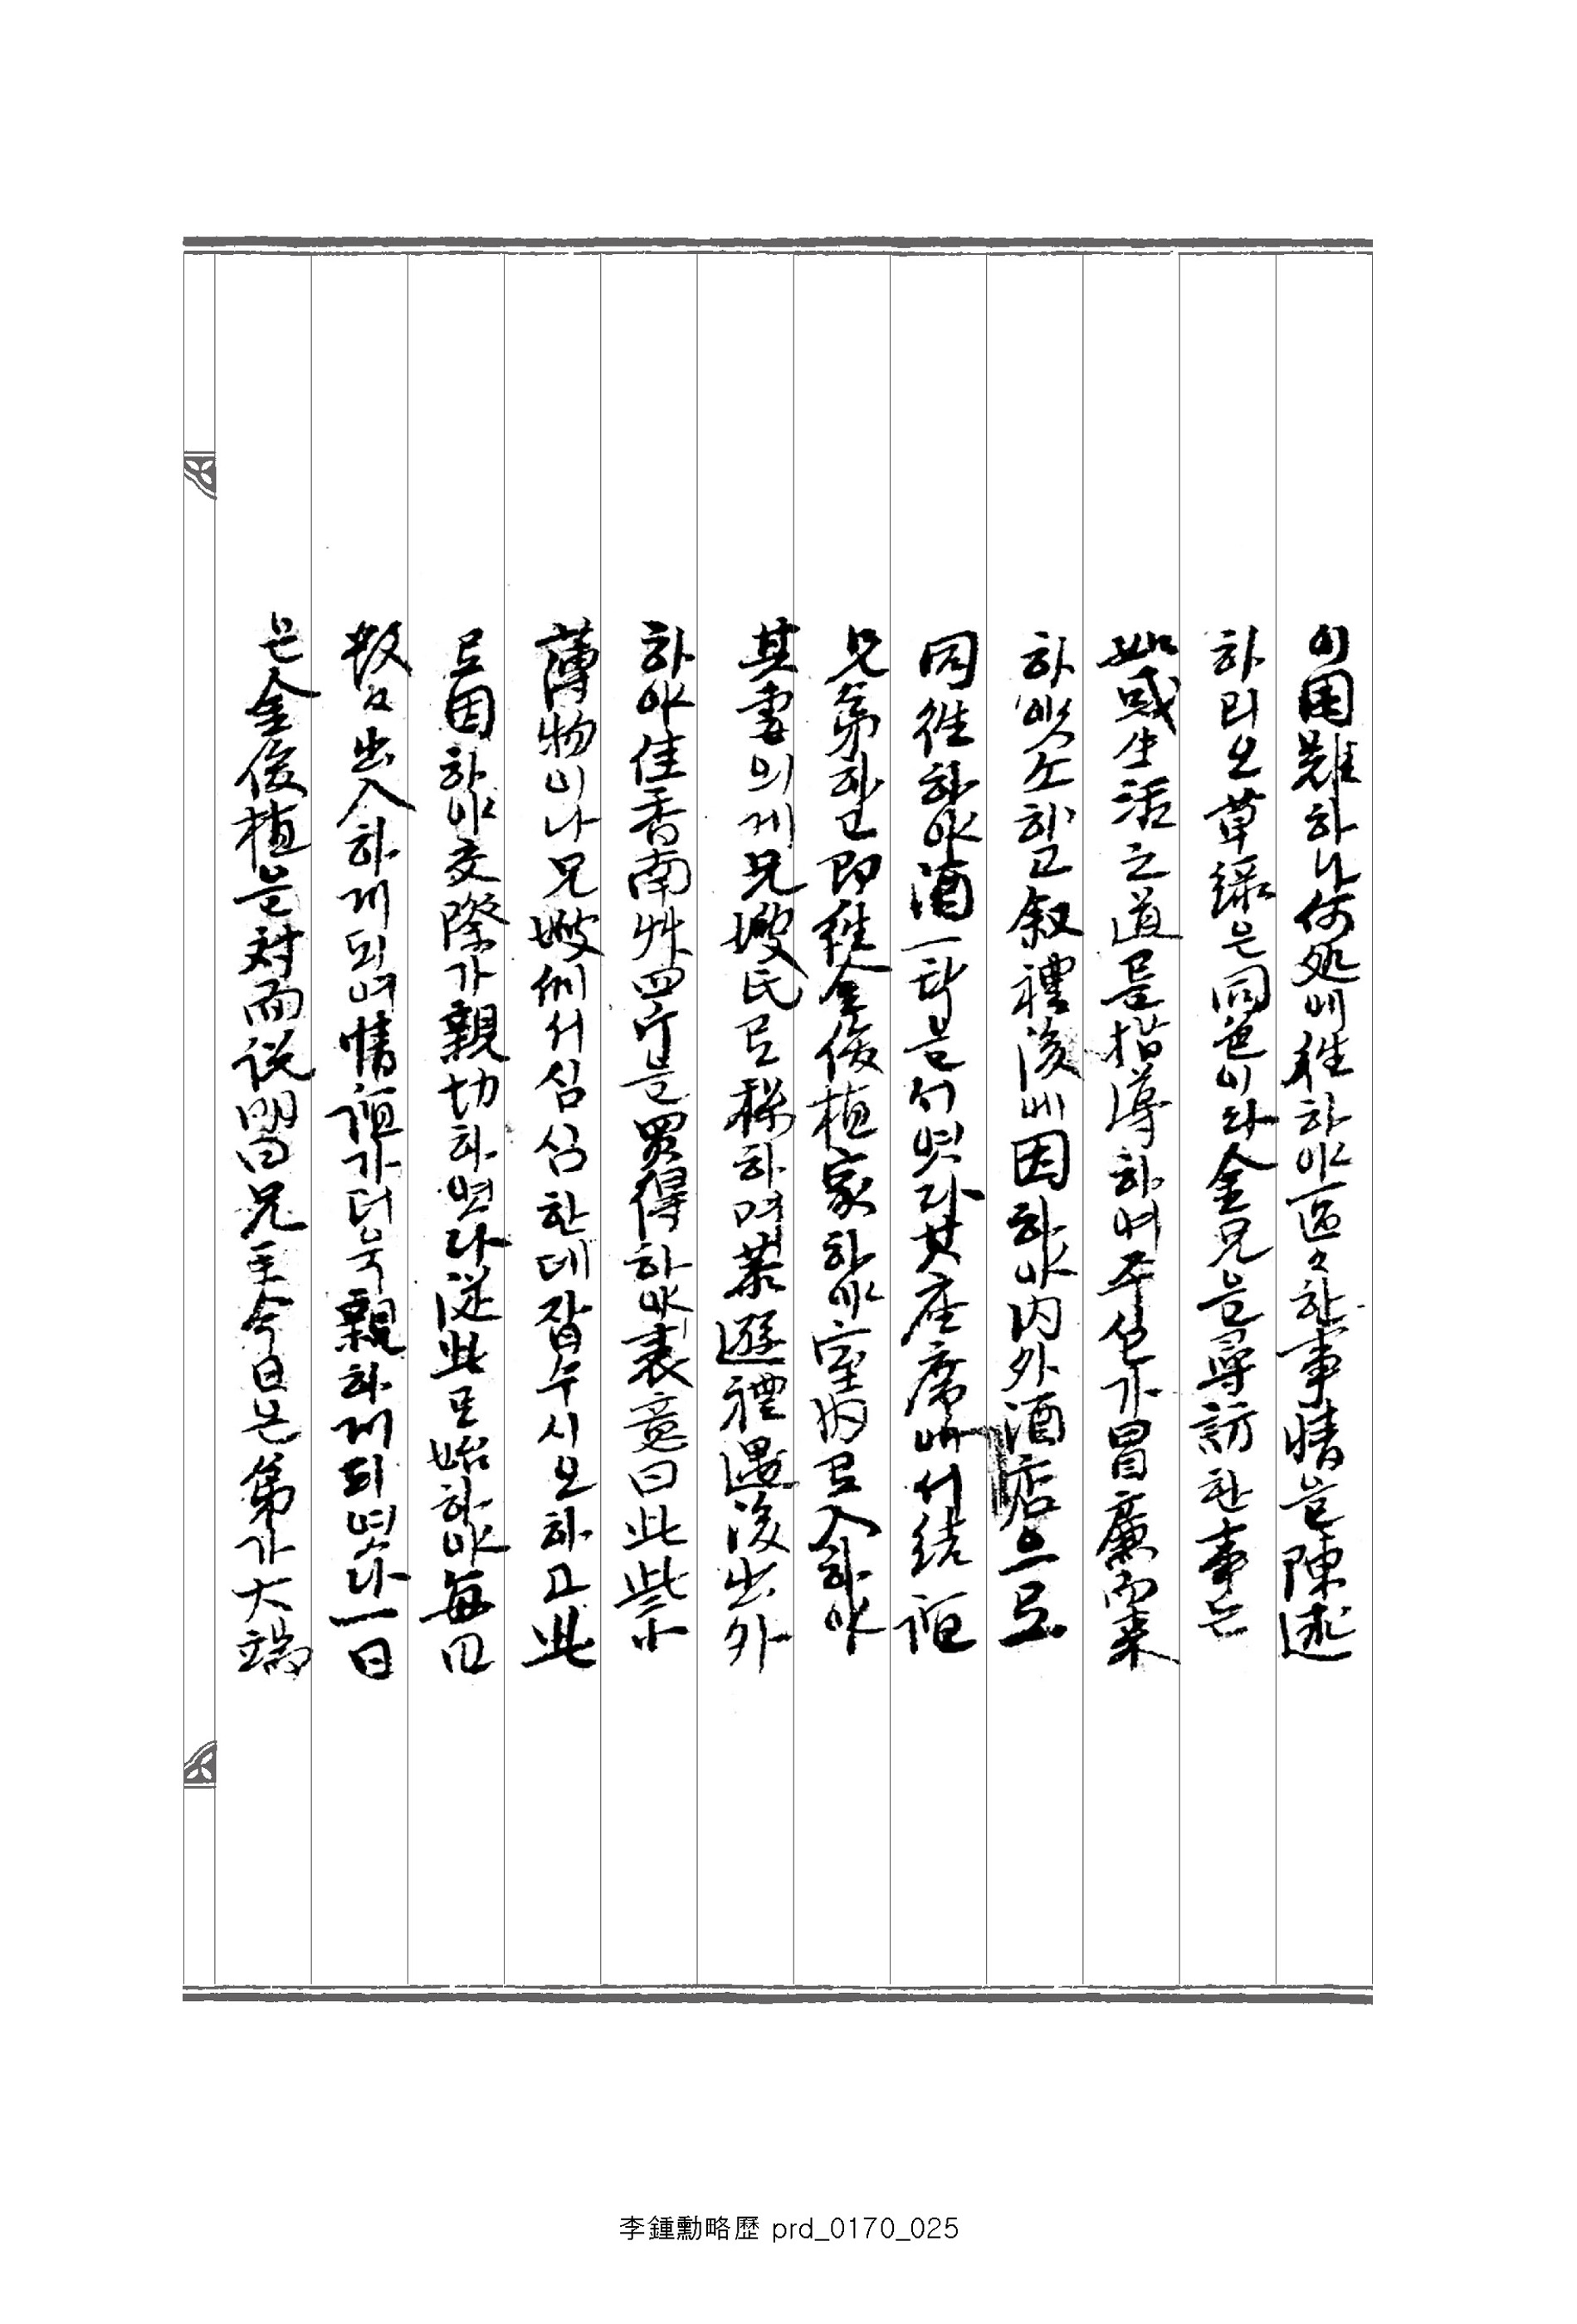 이 困難하나 何処에 往하야 區々한 事情을 陳述
하리오 草綠은 同色이라 金兄을 尋訪한 事는
如或 生活之道를 指導하여 주실가 冒廉而来
하얏소 하고 叙禮後에 因하야 内外酒店으로
同往하야 酒一卓을 서엿다 其座席에서 結誼
兄弟하고 即往金俊植家하야 室内로 入하야
其妻의게 兄嫂氏로 稱하며 恭遜禮遇後 出外
하야 佳香南艸 四斤을 買得하야 表意曰 此些小
薄物이나 兄嫂께서 심심한데 잡수시오 하고 此
로 因하야 交際가 親切하엿다 従此로 始하야 每日
数々出入하게 되여 情誼가 더욱 親하게 되엿다 一日
은 金俊植을 対而说明曰 兄主 今日은 弟가 大端
李鍾勳略歷 prd_0170_025